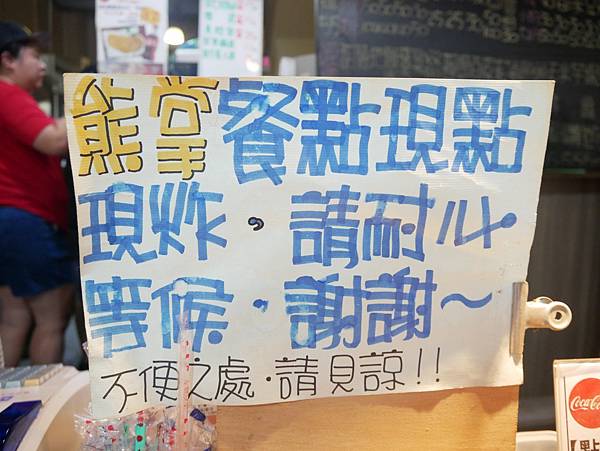 熊掌餐點現點
現炸，請耐心
等候，謝謝～
不便之處·請見諒!!
Coca-Co
【點